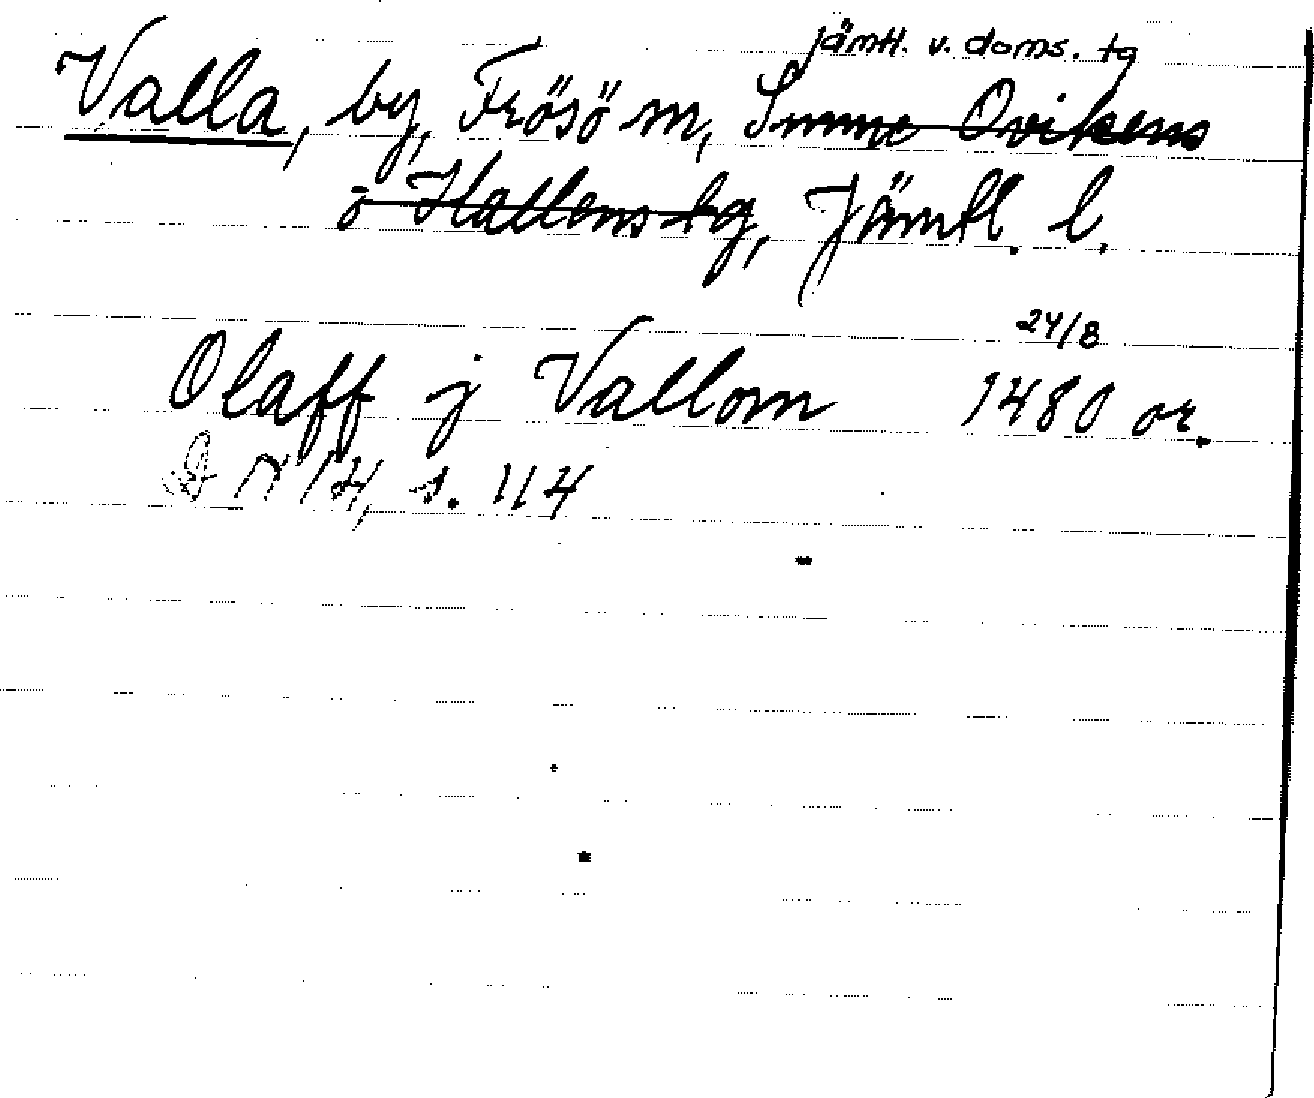 jämtl. v. doms. tg
Valla, by, Frösö m, Sunne Ovikens
o Hallens tg, Jämtl. l.
24/8
Olaff j Vallom 1480 or.
D N 14, s. 114